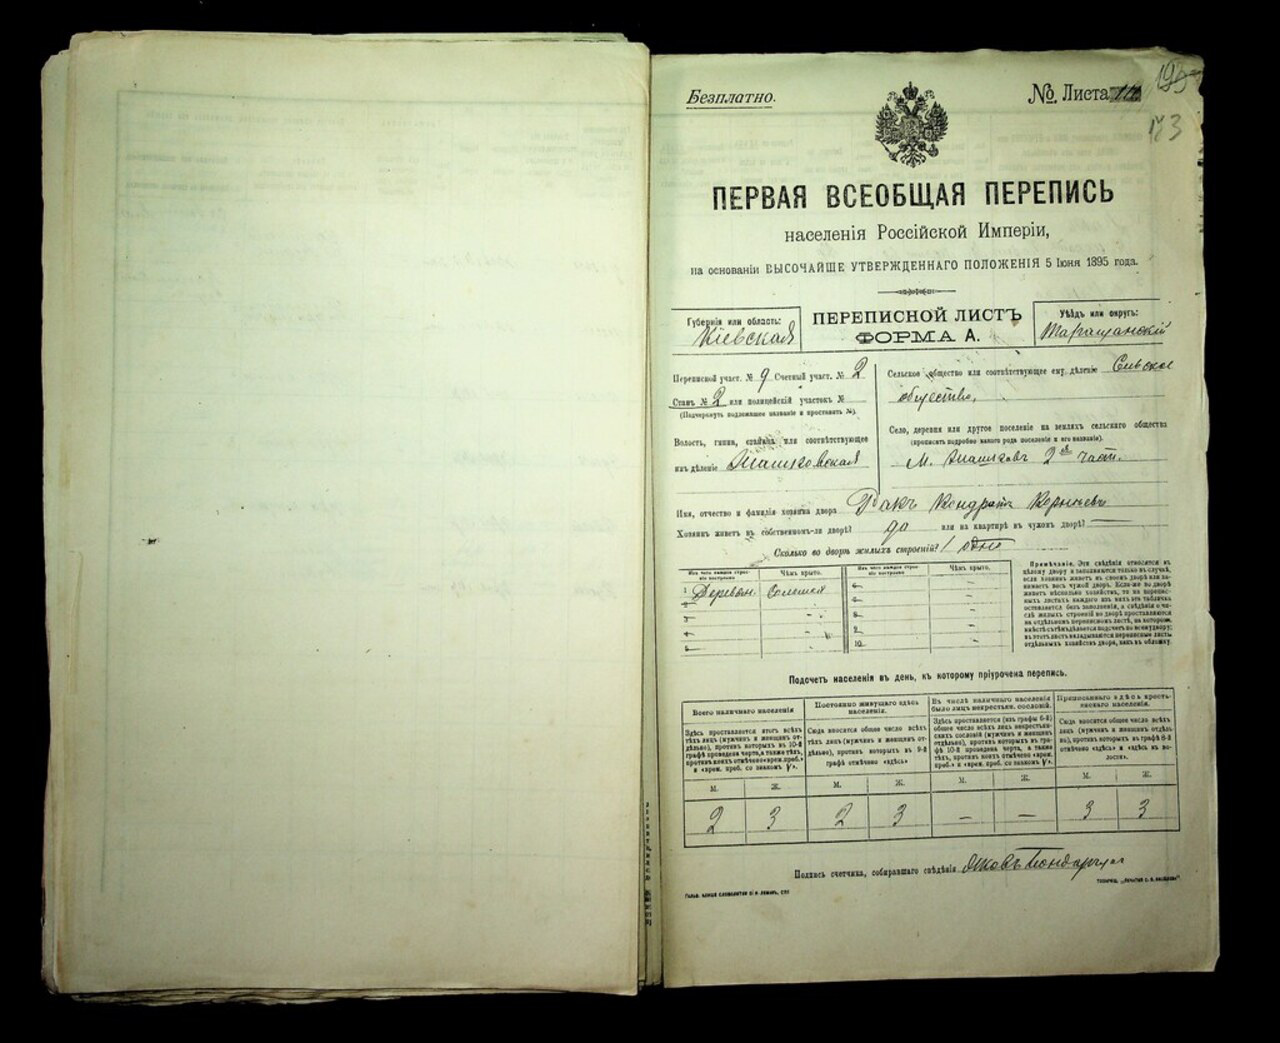 Безплатно.
№ Листа
193
173
ПЕРВАЯ ВСЕОБЩАЯ ПЕРЕПИСЬ
населенія Россійской Имперіи,
на основаніи ВЫСОЧАЙШЕ УТВЕРЖДЕННАГО ПОЛОЖЕНІЯ 5 Іюня 1895 года.
Губернія или область:
Кіевская
ПЕРЕПИСНОЙ ЛИСТЪ
ФОРМА А.
Уѣздъ или округъ:
Таращанскій
Переписной участ. № 9 Счетный участ. № 2
Станъ № 2 или полицейскій участокъ №
(Подчеркнуть подлежащее названіе и проставить №).
Волость, гмина, станица или соотвѣтствующее
имъ дѣленіе
Сельское общество или соотвѣтствующее ему дѣленіе
общество,
Село, деревня или другое поселеніе на земляхъ сельскаго общества
(прописать подробно какого рода поселеніе и его названіе).
М. 2 част.
Имя, отчество и фамилія хозяина двора Кондратъ
Хозяинъ живетъ въ собственномъ-ли дворѣ? да или на квартирѣ въ чужомъ дворѣ? —
Сколько во дворѣ жилыхъ строеній? 1 одно
Изъ чего каждое строеніе построено
Чѣмъ крыто.
Изъ чего каждое строеніе построено
Чѣмъ крыто.
1 Деревян. Соломой
2
3
4
5
6
7
8
9
10
Примѣчаніе. Эти свѣдѣнія относятся къ
цѣлому двору и заполняются только въ случаѣ,
если хозяинъ живетъ въ своемъ дворѣ или занимаетъ
весь чужой дворъ. Если-же во дворѣ
живетъ нѣсколько хозяйствъ, то на переписныхъ
листахъ каждаго изъ нихъ эта табличка
оставляется безъ заполненія, а свѣдѣнія о числѣ
жилыхъ строеній во дворѣ проставляются
на отдѣльномъ переписномъ листѣ, на которомъ
вмѣстѣ съ тѣмъ дѣлается подсчетъ по всему двору;
въ этотъ листъ вкладываются переписные листы
отдѣльныхъ хозяйствъ двора, какъ въ обложку.
Подсчетъ населенія въ день, къ которому пріурочена перепись.
Всего наличнаго населенія
Постоянно живущаго здѣсь населенія.
Въ числѣ наличнаго населенія было лицъ некрестьян. сословій.
Приписаннаго здѣсь крестьянскаго населенія.
Здѣсь проставляется итогъ всѣхъ тѣхъ лицъ (мужчинъ и женщинъ отдѣльно), противъ которыхъ въ 10-й графѣ проведена черта, а также тѣхъ, противъ коихъ отмѣчено «врем. преб.» и «врем. преб. со знакомъ V».
Сюда вносится общее число всѣхъ тѣхъ лицъ (мужчинъ и женщинъ отдѣльно), противъ которыхъ въ 9-й графѣ отмѣчено «здѣсь»
Здѣсь проставляется (изъ графы 6-й) общее число всѣхъ лицъ некрестьянскихъ сословій (мужчинъ и женщинъ отдѣльно), противъ которыхъ въ графѣ 10-й проведена черта, а также тѣхъ, противъ коихъ отмѣчено «врем. преб.» и «врем. преб. со знакомъ V».
Сюда вносится общее число всѣхъ лицъ (мужчинъ и женщинъ отдѣльно), противъ которыхъ въ графѣ 8-й отмѣчено «здѣсь» и «здѣсь въ волости».
М. Ж. М. Ж. М. Ж. М. Ж.
2 3 2 3 — — 3 3
Подпись счетчика, собиравшаго свѣдѣнія Яковъ